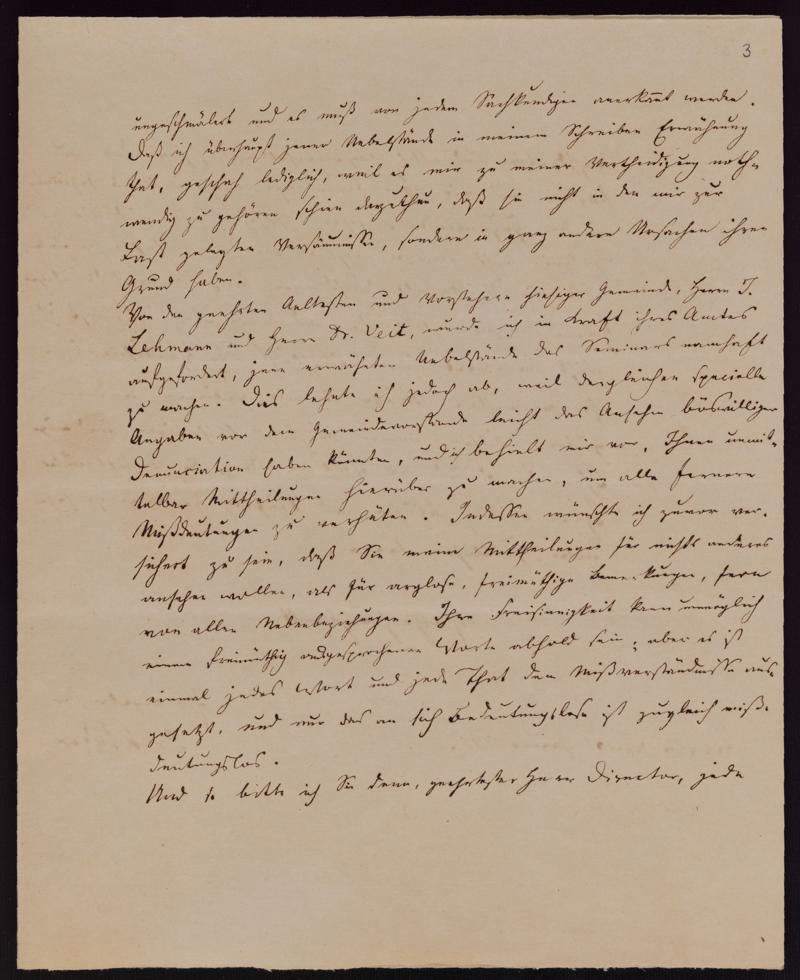 3
ungeschmälert und es muß von jedem Sachkundigen anerkannt werden.
Daß ich überhaupt jener Uebelstände in meinem Schreiben Erwähnung
that, geschah lediglich, weil es mir zu meiner Vertheidigung noth-
wendig zu gehören schien darzuthun, daß sie nicht in den mir zur
Last gelegten Versäumnisse, sondern in ganz andern Ursachen ihren
Grund haben.
Von den geehrten Aeltesten und Vorstehern hiesiger Gemeinde, Herrn J.
Lehmann und Herrn Dr. Veit, wurde ich in Kraft ihres Amtes
aufgefordert, jene erwähnten Uebelstände des Seminars namhaft
zu machen. Dies lehnte ich jedoch ab, weil dergleichen specielle
Angaben vor dem Gemeindevorstande leicht das Ansehn böswilliger
Denunciation haben könnten, und ich behielt mir vor, Ihnen unmit-
telbar Mittheilungen hierüber zu machen, um alle fernern
Mißdeutungen zu verhüten. Indessen wünschte ich zuvor ver-
sichert zu sein, daß Sie meine Mittheilungen für nichts anderes
ansehen wollen, als für arglose, freimüthige Bemerkungen, fern
von allen Nebenbeziehungen. Ihre Freisinnigkeit kann unmöglich
einem freimüthig ausgesprochenen Worte abhold sein; aber es ist
einmal jedes Wort und jede That dem Mißverständnisse aus-
gesetzt, und nur das an sich Bedeutungslose ist zugleich miß-
deutungslos.
Und so bitte ich Sie denn, geehrtester Herr Director, jede